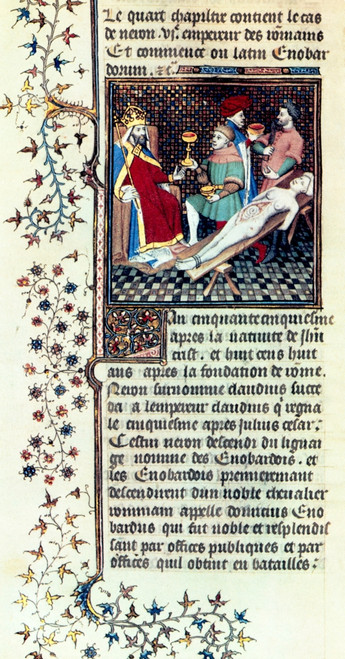 Le quart chapiltre contient le cas
de neron .vi.e empereur des romains
Et commence ou latin Enobar
dorum. &c.
An cinquante cinquiesme
apres la nativite de Jhu
crist. et huit cens huit
ans apres la fondation de rome.
Neron surnomme claudius succe
da a lempereur claudius q̄ regna
le cinquiesme apres Julius cesar.
Cestui neron descendi du lignai
ge nomme des Enobardois. et
les Enobardois premierement
descendirent dun noble chevalier
rommain appelle domicius Eno
bardus qui fut noble et resplendis
sant par offices publiques et par
offices quil obtint en batailles :